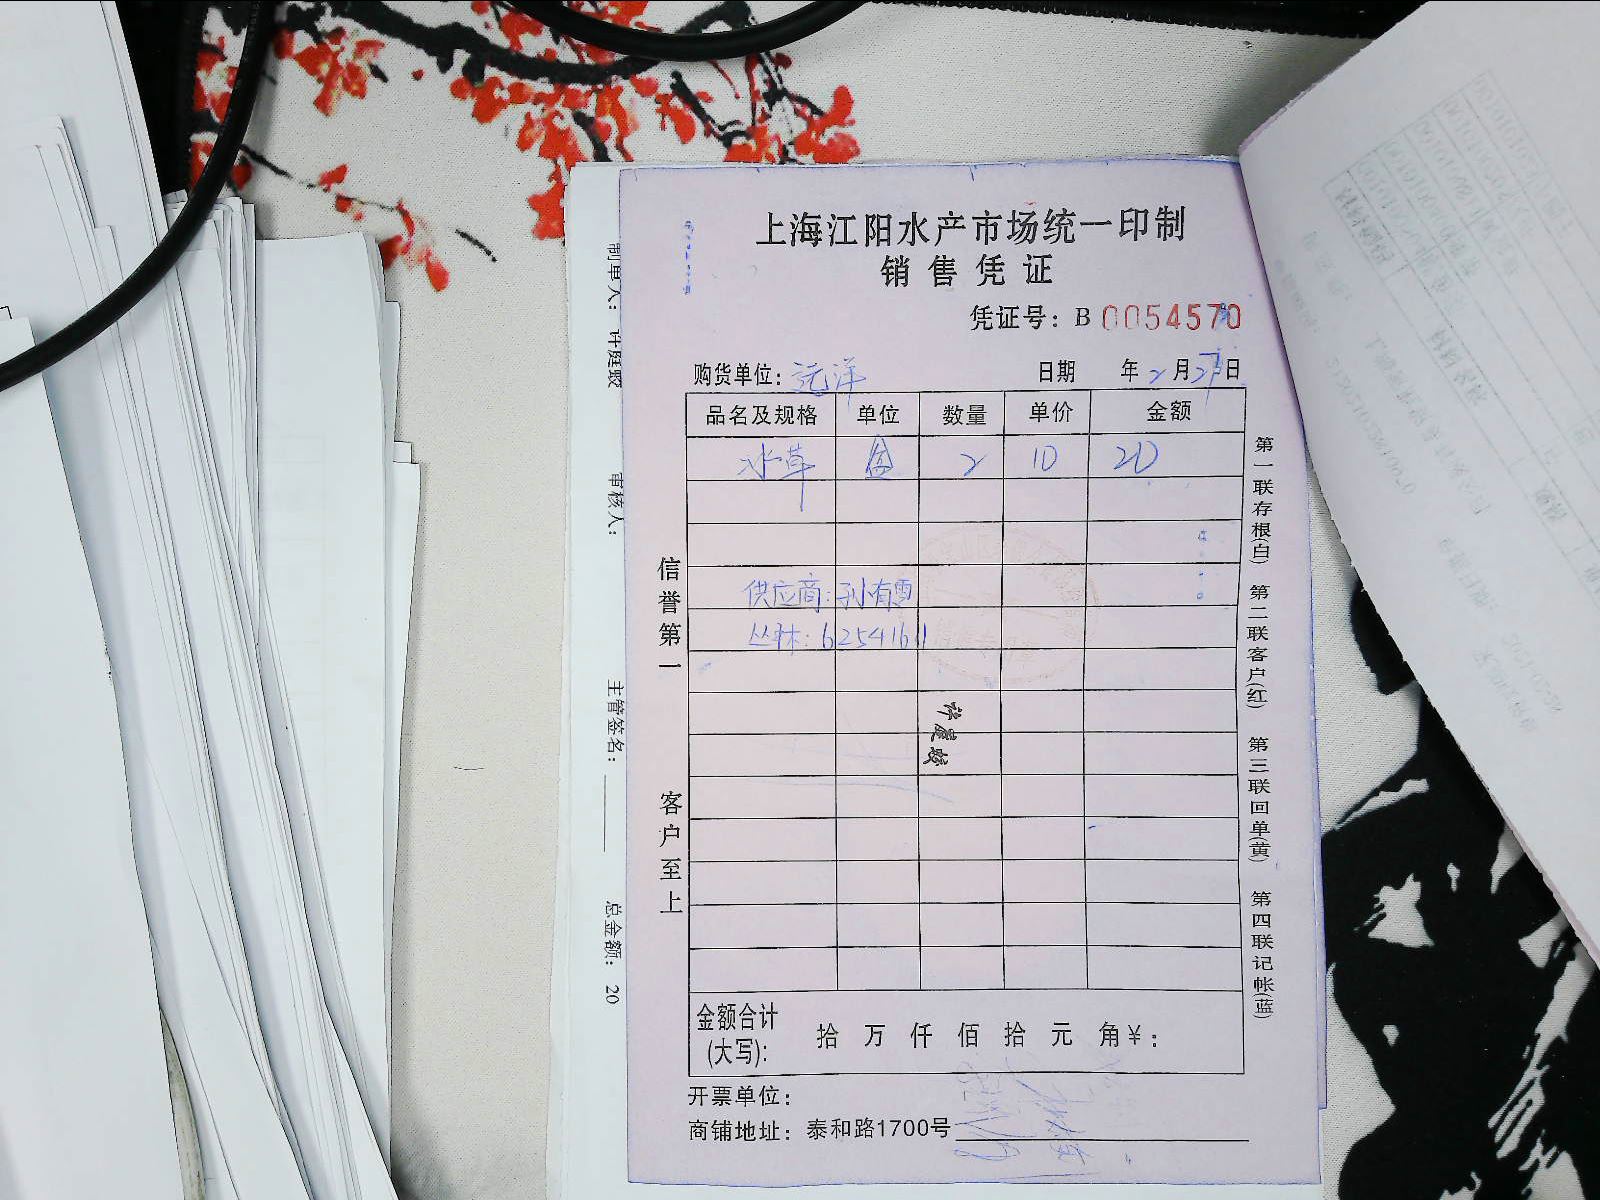 上海江阳水产市场统一印制
销售凭证
凭证号：B 0054570
购货单位：远洋 日期 年2月27日
品名及规格 单位 数量 单价 金额
水草 盒 2 10 20
供应商：孙有雪
丛林：6254161
许庭蛟
金额合计(大写)： 拾 万 仟 佰 拾 元 角 ¥：
开票单位：
商铺地址：泰和路1700号
信誉第一
客户至上
第一联存根(白) 第二联客户(红) 第三联回单(黄) 第四联记帐(蓝)
制单人： 许庭蛟 审核人： 主管签名： 总金额： 20